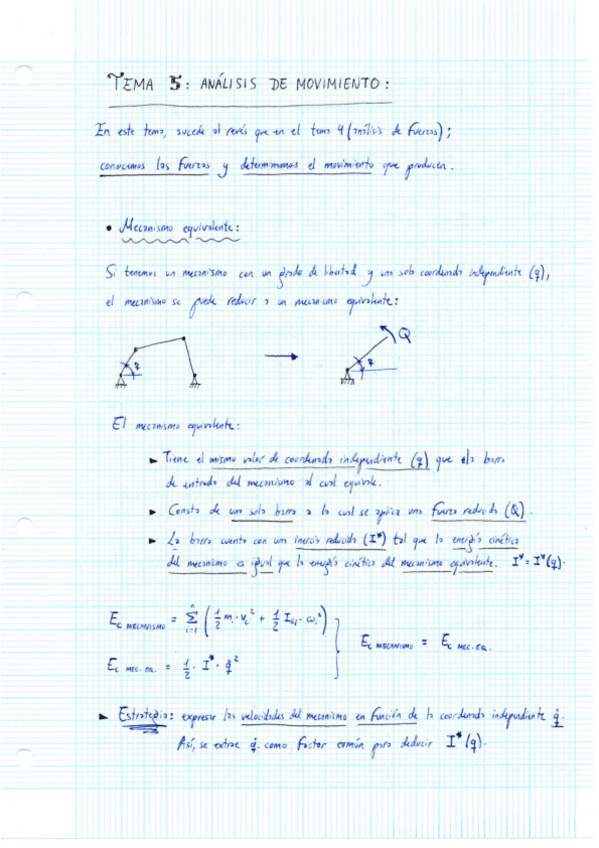 TEMA 5: ANÁLISIS DE MOVIMIENTO:
En este tema, sucede al revés que en el tema 4 (análisis de fuerzas);
conocemos las fuerzas y determinamos el movimiento que producen.
• Mecanismo equivalente:
Si tenemos un mecanismo con un grado de libertad y una sola coordenada independiente (q),
el mecanismo se puede reducir a un mecanismo equivalente:
q → q Q
El mecanismo equivalente:
► Tiene el mismo valor de coordenada independiente (q) que la barra
de entrada del mecanismo al cual equivale.
► Consta de una sola barra a la cual se aplica una fuerza reducida (Q).
► La barra cuenta con una inercia reducida (I*) tal que la energía cinética
del mecanismo es igual que la energía cinética del mecanismo equivalente. I* = I*(q).
Ec MECANISMO = Σ i=1 n (1/2 mi · vi² + 1/2 IGi · ωi²)
Ec MECANISMO = Ec MEC. EQ.
Ec MEC. EQ. = 1/2 · I* · q̇²
► Estrategia: expresar las velocidades del mecanismo en función de la coordenada independiente q̇.
Así, se extrae q̇ como factor común para deducir I*(q).